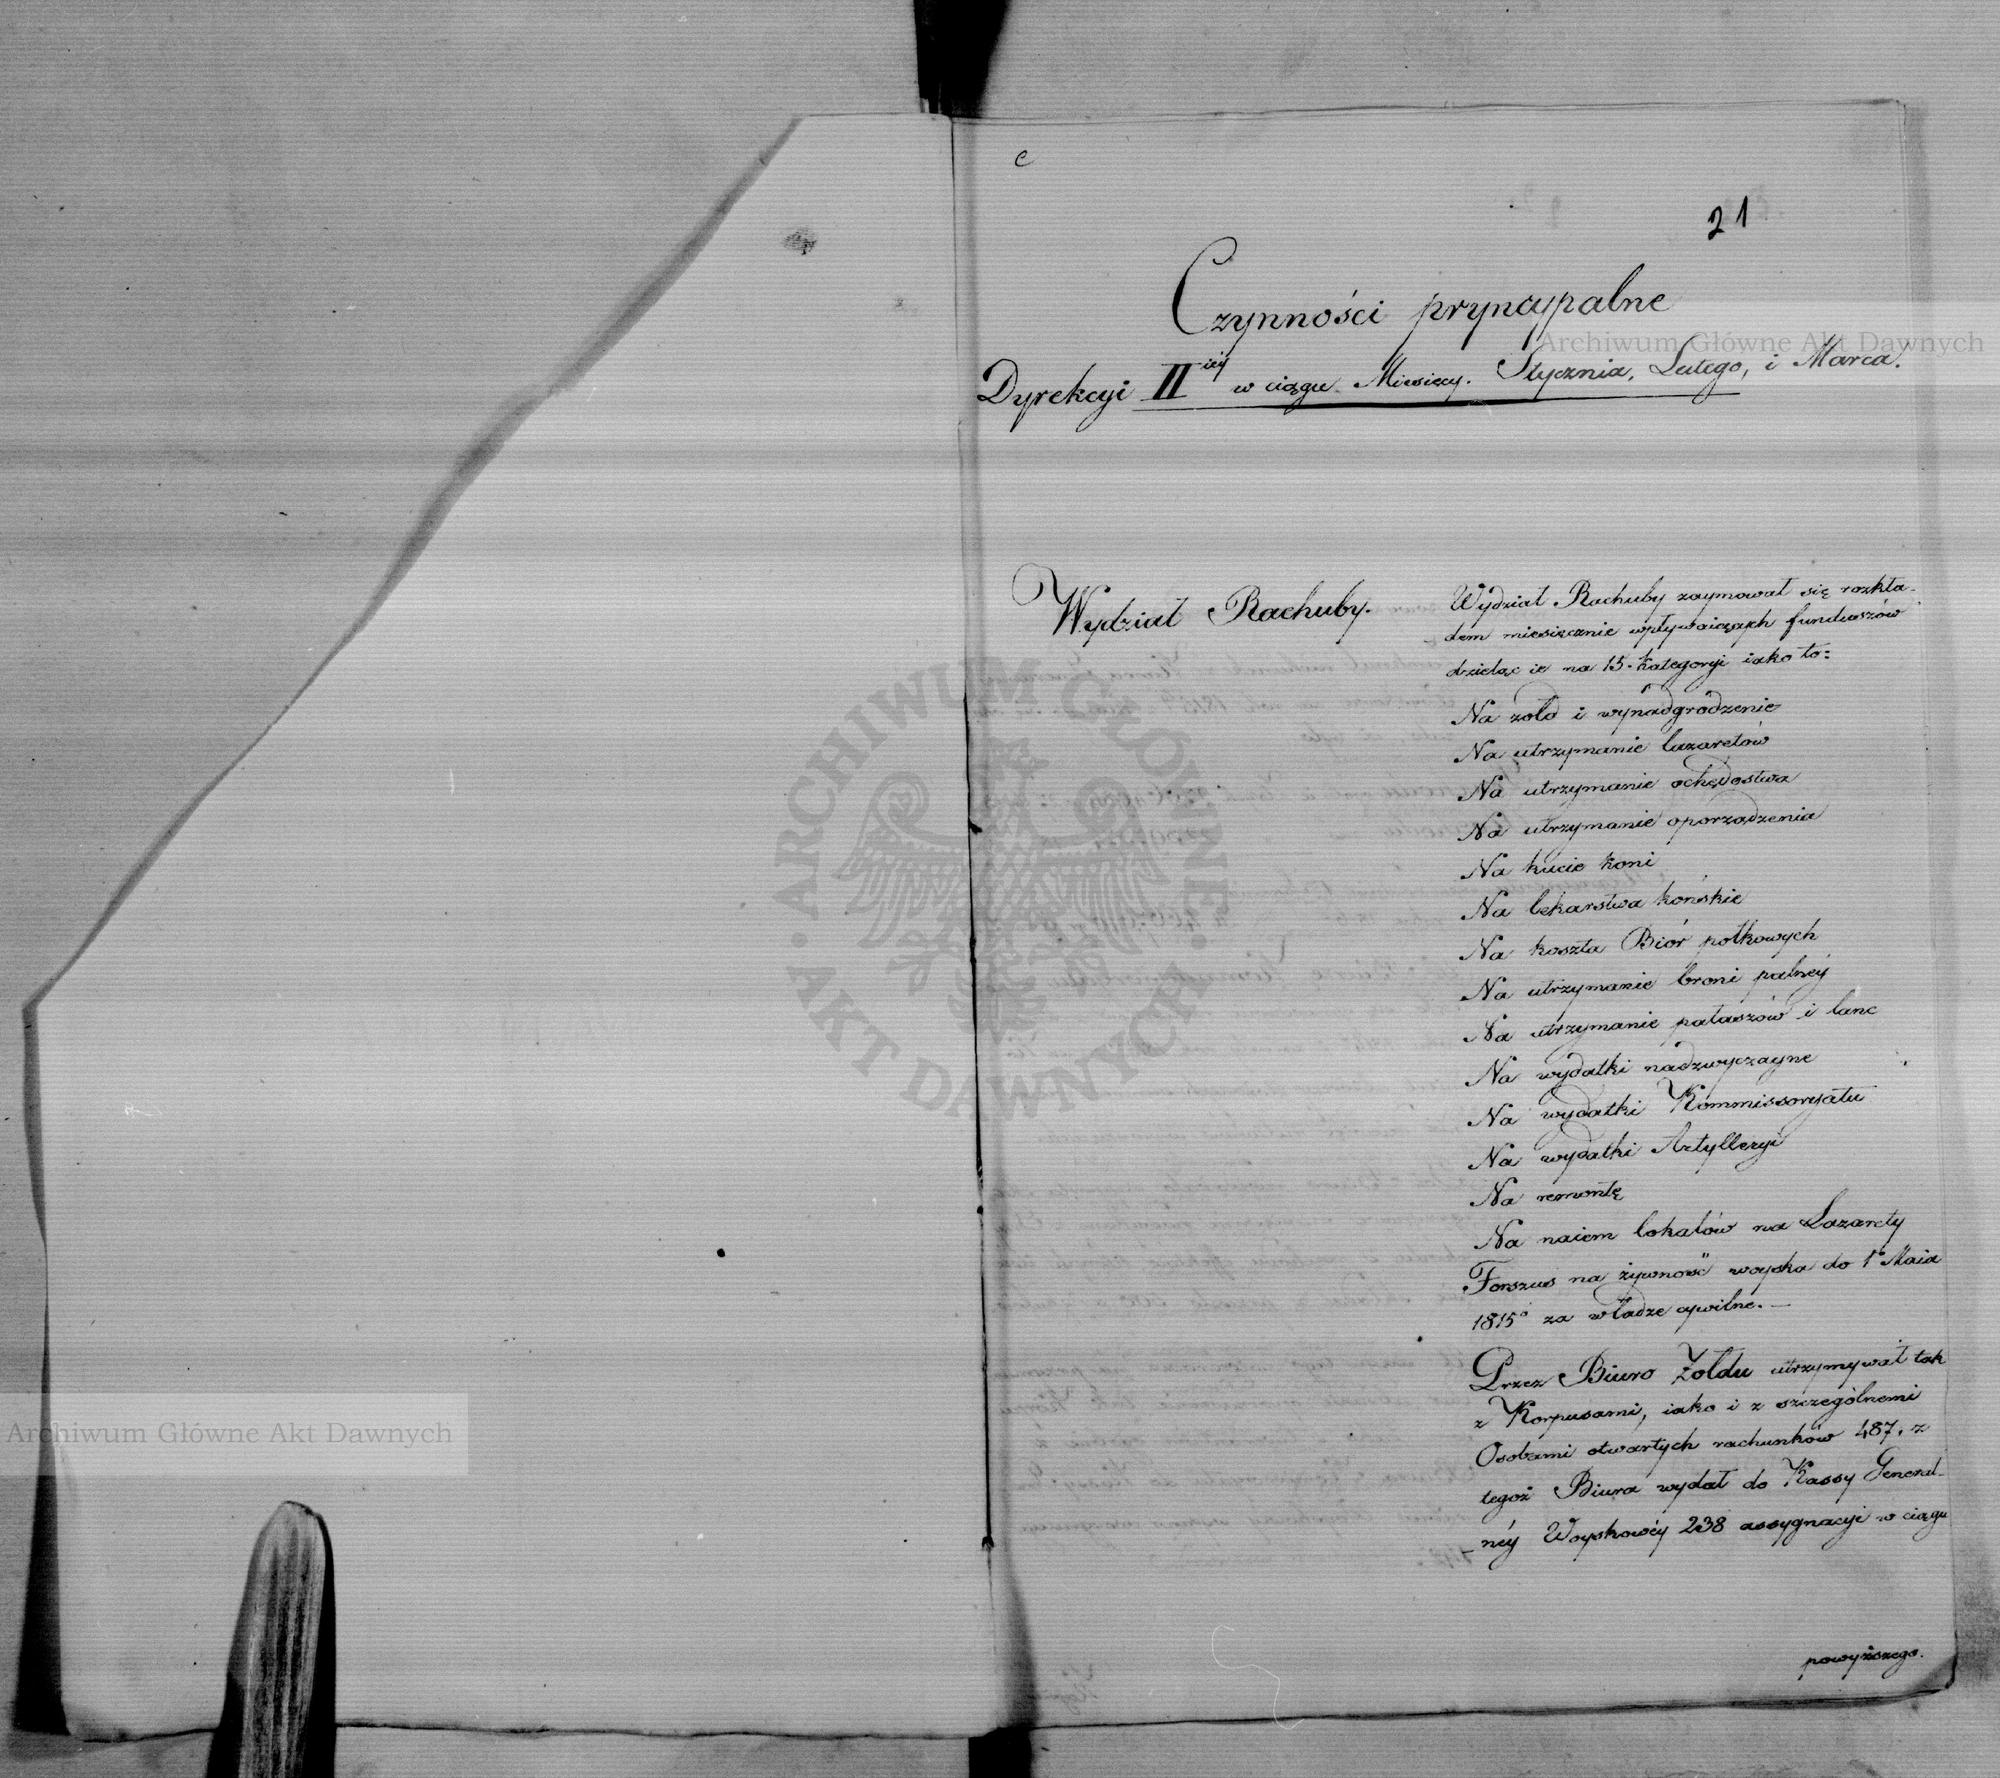 c
21
Czynności pryncypalne
Dyrekcyi II iéy w ciągu Miesięcy. Stycznia, Lutego, i Marca.
Wydział Rachuby.
Wydział Rachuby zaymował się rozkła-
dem miesięcznie wpływaiących funduszów
dzieląc ie na 15. kategoryi iako to:
Na żołd i wynadgrodzenie
Na utrzymanie lazaretów
Na utrzymanie ochędostwa
Na utrzymanie oporządzenia
Na kucie koni
Na lekarstwa końskie
Na koszta Biór półkowych
Na utrzymanie broni palnéy
Na utrzymanie pałaszów i lanc
Na wydatki nadzwyczayne
Na wydatki Kommissoryatu
Na wydatki Artylleryi
Na remontę
Na naiem lokalów na Lazarety
Forszus na żywność woyska do 1o Maia
1815o za władze cywilne. —
Przez Biuro Żołdu utrzymywał tak
z Korpusami, iako i z szczególnemi
Osobami otwartych rachunków 487. z
tegoż Biura wydał do Kassy General-
néy Woyskowéy 238 assygnacyi w ciągu
powyższego.
Archiwum Główne Akt Dawnych
Archiwum Główne Akt Dawnych
ARCHIWUM GŁÓWNE • AKT DAWNYCH •